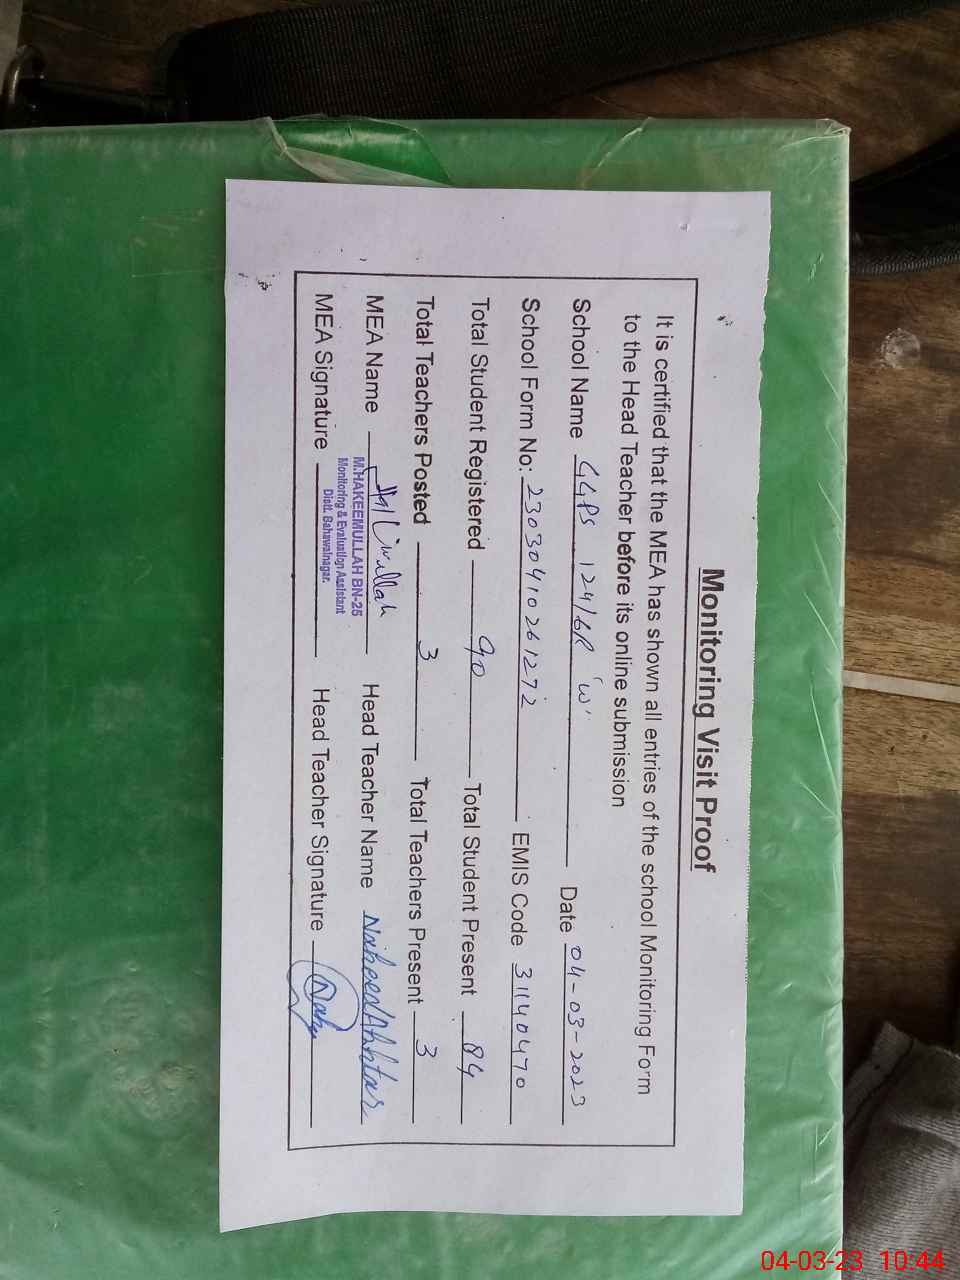 Monitoring Visit Proof
It is certified that the MEA has shown all entries of the school Monitoring Form
to the Head Teacher before its online submission
School Name GGPS 124/6R 'W' Date 04-03-2023
School Form No: 23030410261272 EMIS Code 31140470
Total Student Registered 90 Total Student Present 84
Total Teachers Posted 3 Total Teachers Present 3
MEA Name Head Teacher Name Naheed Akhtar
M.HAKEEMULLAH BN-25
Monitoring & Evaluation Assistant
Distt. Bahawalnagar.
MEA Signature Head Teacher Signature
04-03-23 10:44